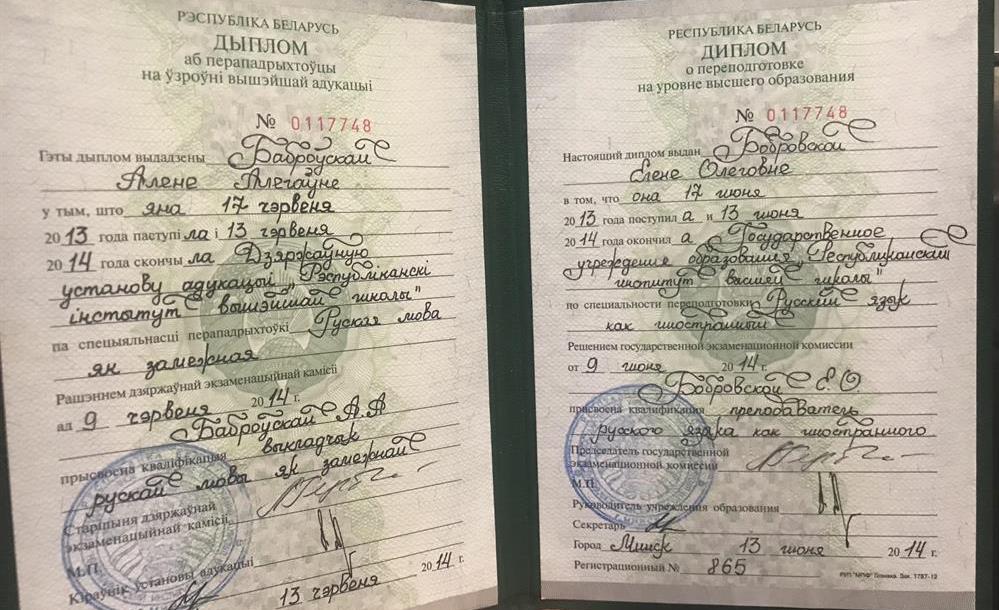 РЭСПУБЛІКА БЕЛАРУСЬ
ДЫПЛОМ
аб перападрыхтоўцы
на ўзроўні вышэйшай адукацыі
№ 0117748
Гэты дыплом выдадзены Баброўскай
Алене Алегаўне
у тым, што яна 17 чэрвеня
2013 года паступіла і 13 чэрвеня
2014 года скончыла Дзяржаўную
установу адукацыі „Рэспубліканскі
інстытут вышэйшай школы"
па спецыяльнасці перападрыхтоўкі Руская мова
як замежная
Рашэннем дзяржаўнай экзаменацыйнай камісіі
ад 9 чэрвеня 2014 г.
Баброўскай А.А
прысвоена кваліфікацыя выкладчык
рускай мовы як замежнай
Старшыня дзяржаўнай
экзаменацыйнай камісіі
М.П.
Кіраўнік установы адукацыі
13 чэрвеня 2014 г.
РЕСПУБЛИКА БЕЛАРУСЬ
ДИПЛОМ
о переподготовке
на уровне высшего образования
№ 0117748
Настоящий диплом выдан Бобровской
Елене Олеговне
в том, что она 17 июня
2013 года поступила и 13 июня
2014 года окончила Государственное
учреждения образования „Республиканский
институт высшей школы"
по специальности переподготовки Русский язык
как иностранный
Решением государственной экзаменационной комиссии
от 9 июня 2014 г.
Бобровской Е.О
присвоена квалификация преподаватель
русского языка как иностранного
Председатель государственной
экзаменационной комиссии
М.П.
Руководитель учреждения образования
Секретарь
Город Минск 13 июня 2014 г.
Регистрационный № 865
РУП "МПФ" Гознака. Зак. 1787-12